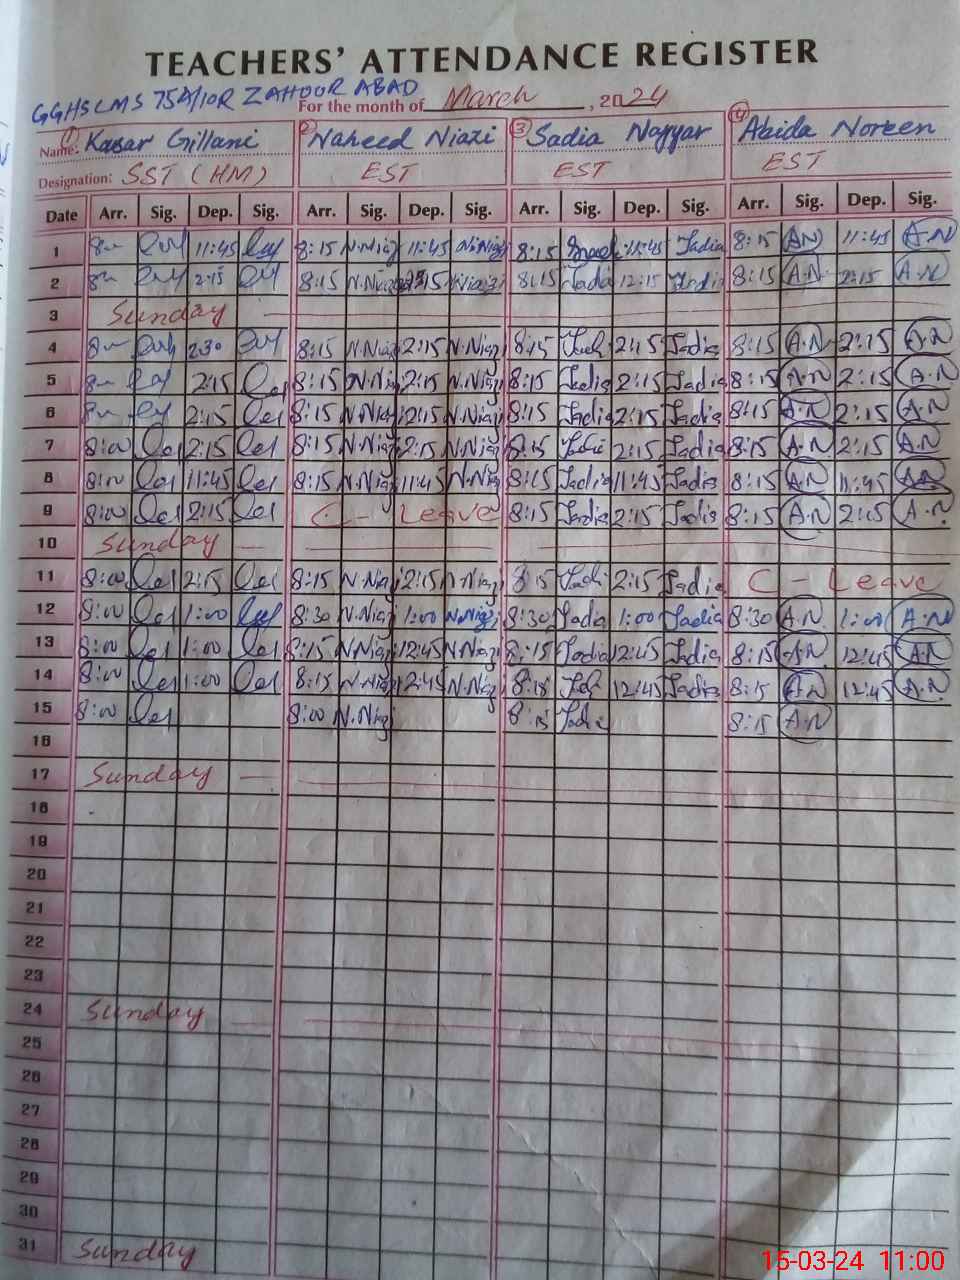 TEACHERS' ATTENDANCE REGISTER
GGHS LMS 75A/10R ZAHOOR ABAD
For the month of March, 2024
Name: ① Kausar Gillani ② Naheed Niazi ③ Sadia Nayyar ④ Abida Noreen
Designation: SST (HM) EST EST EST
Date Arr. Sig. Dep. Sig. Arr. Sig. Dep. Sig. Arr. Sig. Dep. Sig. Arr. Sig. Dep. Sig.
1 11:45 8:15 N.Niazi 11:45 N.Niazi 8:15 11:45 Sadia 8:15 A.N 11:45 A.N
2 2:15 8:15 N.Niazi 8:15 Sadia 12:15 8:15 A.N 2:15 A.N
3 Sunday
4 2:30 8:15 N.Niazi 2:15 N.Niazi 8:15 2:15 Sadia 8:15 A.N 2:15 A.N
5 2:15 8:15 N.Niazi 2:15 N.Niazi 8:15 Sadia 2:15 Sadia 8:15 A.N 2:15 A.N
6 2:15 8:15 N.Niazi 2:15 N.Niazi 8:15 Sadia 2:15 Sadia 8:15 A.N 2:15 A.N
7 8:00 2:15 8:15 N.Niazi 2:15 N.Niazi 8:15 Sadia 2:15 Sadia 8:15 A.N 2:15 A.N
8 8:00 11:45 8:15 N.Niazi 11:45 N.Niazi 8:15 Sadia 11:45 Sadia 8:15 A.N 11:45 A.N
9 8:00 2:15 C - Leave 8:15 Sadia 2:15 Sadia 8:15 A.N 2:15 A.N
10 Sunday
11 8:00 2:15 8:15 N.Niazi 2:15 N.Niazi 8:15 Sadi 2:15 Sadia C - Leave
12 8:00 1:00 8:30 N.Niazi 1:00 N.Niazi 8:30 Sadia 1:00 Sadia 8:30 A.N 1:00 A.N
13 8:00 1:00 8:15 N.Niazi 12:45 N.Niazi 8:15 Sadia 12:45 Sadia 8:15 A.N 12:45 A.N
14 8:00 1:00 8:15 N.Niazi 12:45 N.Niazi 8:15 12:45 Sadia 8:15 A.N 12:45 A.N
15 8:00 8:00 N.Niazi 8:15 Sadia 8:15 A.N
16
17 Sunday
18
19
20
21
22
23
24 Sunday
25
26
27
28
29
30
31 Sunday
15-03-24 11:00